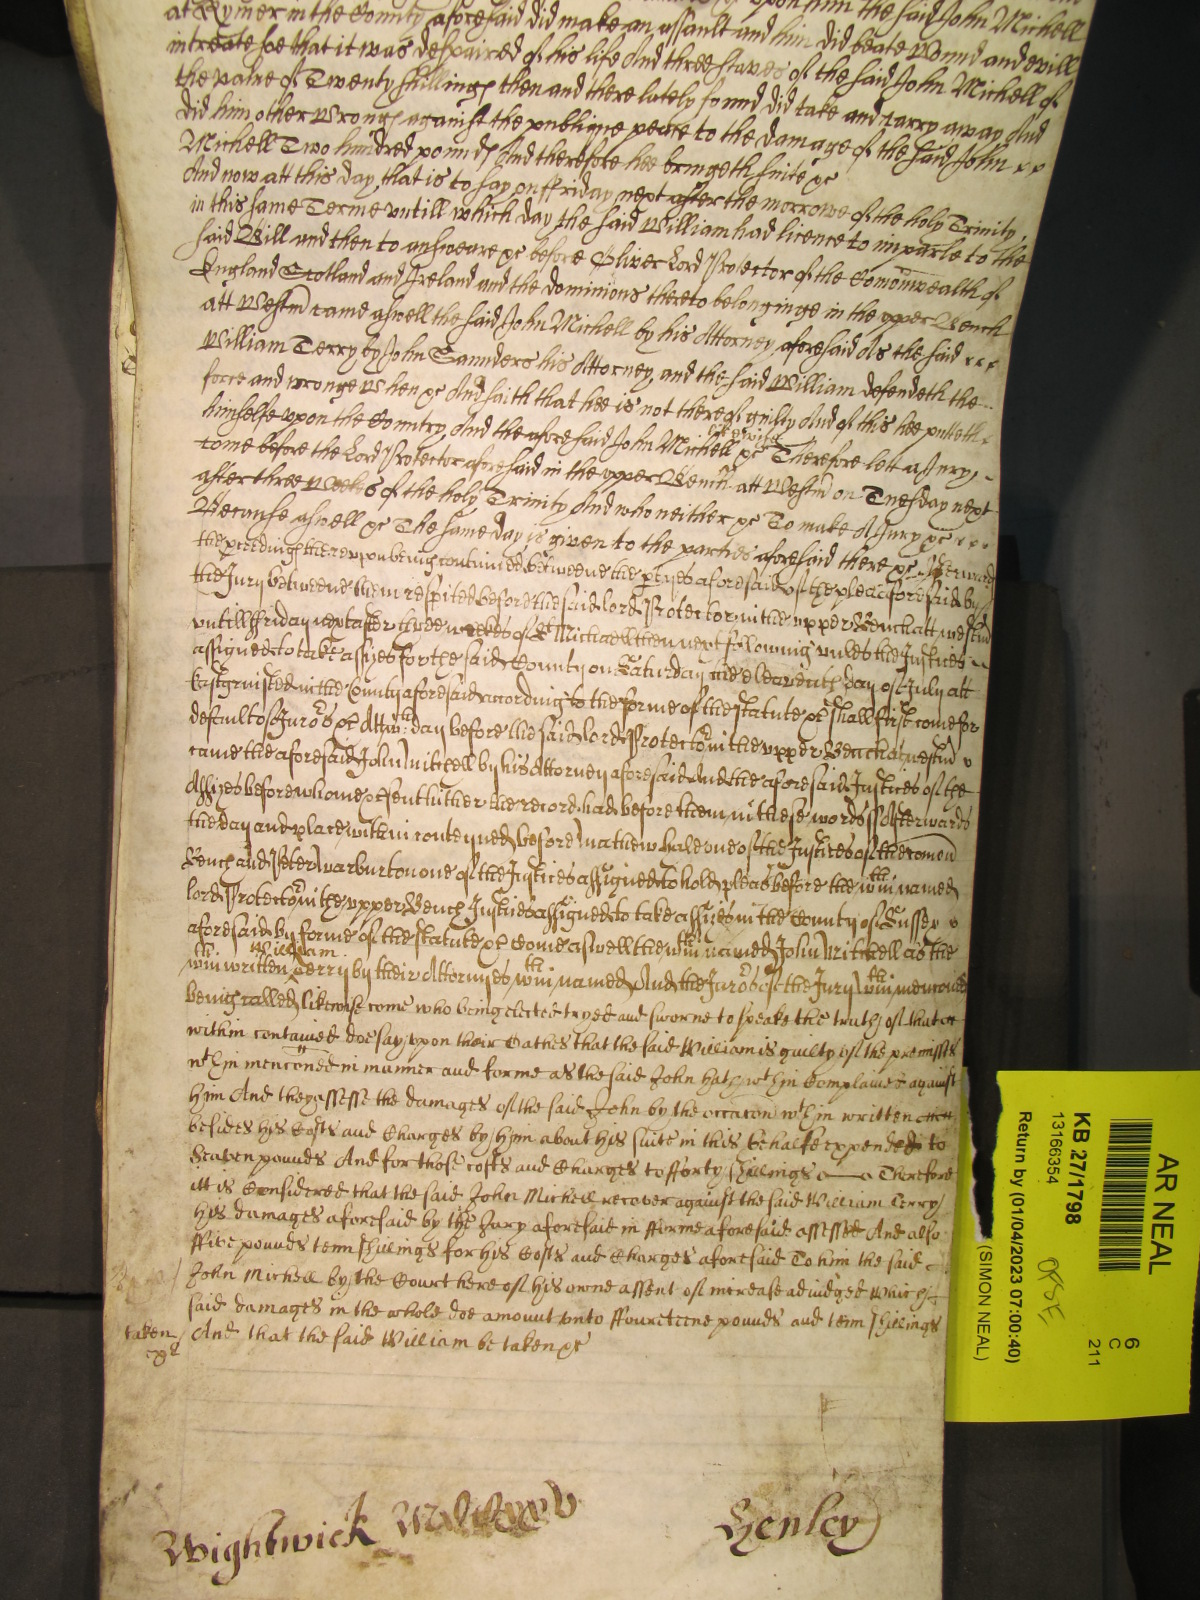 upon him the said John Michell
at Rymer in the County aforesaid did make an assault and him did beate wound and evill
intreate soe that it was despaired of his life And three staves of the said John Michell of
the value of Twenty shillings then and there lately found did take and carry away And
did him other wrongs against the publique peace to the damage of the said John
Michell Two hundred pounds And therefore hee bringeth suite &c
And now att this day, that is to say on ffriday next after the morrowe of the holy Trinity,
in this same Terme untill which day the said William had licence to imparle to the
said Bill and then to answeare &c before Oliver Lord Protector of the Comonwealth of
England Scotland and Ireland and the dominions thereto belonginge in the upper Bench
att Westm came aswell the said John Michell by his Attorney aforesaid As the said
William Terry by John Saunders his Attorney, and the said William defendeth the
force and wronge when &c And saith that hee is not thereof guilty And of this hee putteth
himselfe upon the Country, And the aforesaid John Michell likewise &c Therefore lett a Jury,
come before the Lord Protector aforesaid in the upper Bench att Westm on Tuesday next
after three weekes of the holy Trinity And who neither &c To make A Jury &c
Because aswell &c The same day is given to the parties aforesaid there &c Afterwards
the proceedings thereupon being continued betweene the partyes aforesaid of the plea aforesaid by
the Jury betweene them respited before the said lord Protector in the upper Bench att westm
untill ffriday next after three weekes of St Michaell then next following unles the Justices
assigned to take assizes for the said County on Saturday the eleaventh day of July att
Eastgrinsted in the County aforesaid according to the forme of the statute &c shall first come for
default of Jurors &c Att wch day before the said lord Protector in the upper Bench at westm
came the aforesaid John Mitchell by his Attorney aforesaid And the aforesaid Justices of the
Assizes before whome &c sent hither the record had before them in these words ss Afterwards
the day and place within conteyned before Mathew Hale one of the Justices of the comon
Bench and Peter warburton one of the Justices assigned to hold pleas before the wthin named
lord Protector in the upper Bench Justices assigned to take assizes in the County of Sussex
aforesaid by forme of the statute &c Come aswell the wthin named John Mitchell as the
wthin written William Terry by their Attornyes wthin named And the Jurors of the Jury wthin mencioned
being called likewise come who being elected tryed and sworne to speake the truth of that
within contained doe say upon their Oathes that the said William is guilty of the premisses
wthin mencioned in manner and forme as the said John hath wthin Complained against
him And they assesse the damages of the said John by the occacion wthin written
besides his Costs and Charges by him about his suite in this behalfe expended to
Seaven pounds And for those costs and Charges to fforty shillings Therefore
itt is Considered that the said John Michell recover against the said William Terry
his damages aforesaid by the Jury aforesaid in fforme aforesaid assessed And also
ffive pounds tenn shillings for his Costs and Charges aforesaid To him the said
John Michell by the Court here of his owne assent of increase adiudged Which
said damages in the whole doe amount unto ffourteene pounds and tenn shillings
And that the said William be taken &c
taken
Wightwick
Henley
AR NEAL
6
C
211
KB 27/1798
13166354
Return by (01/04/2023 07:00:40)
(SIMON NEAL)